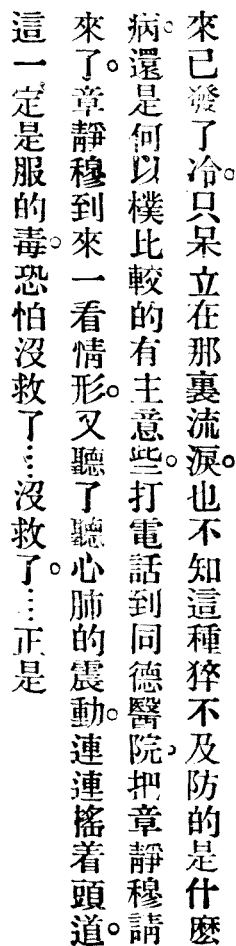 來已發了冷。只呆立在那裏流淚。也不知這種猝不及防的是什麽
病。還是何以樸比較的有主意些。打電話到同德醫院，把章靜穆請
來了。章靜穆到來一看情形。又聽了聽心肺的震動。連連搖着頭道。
這一定是服的毒。恐怕沒救了…沒救了。…正是